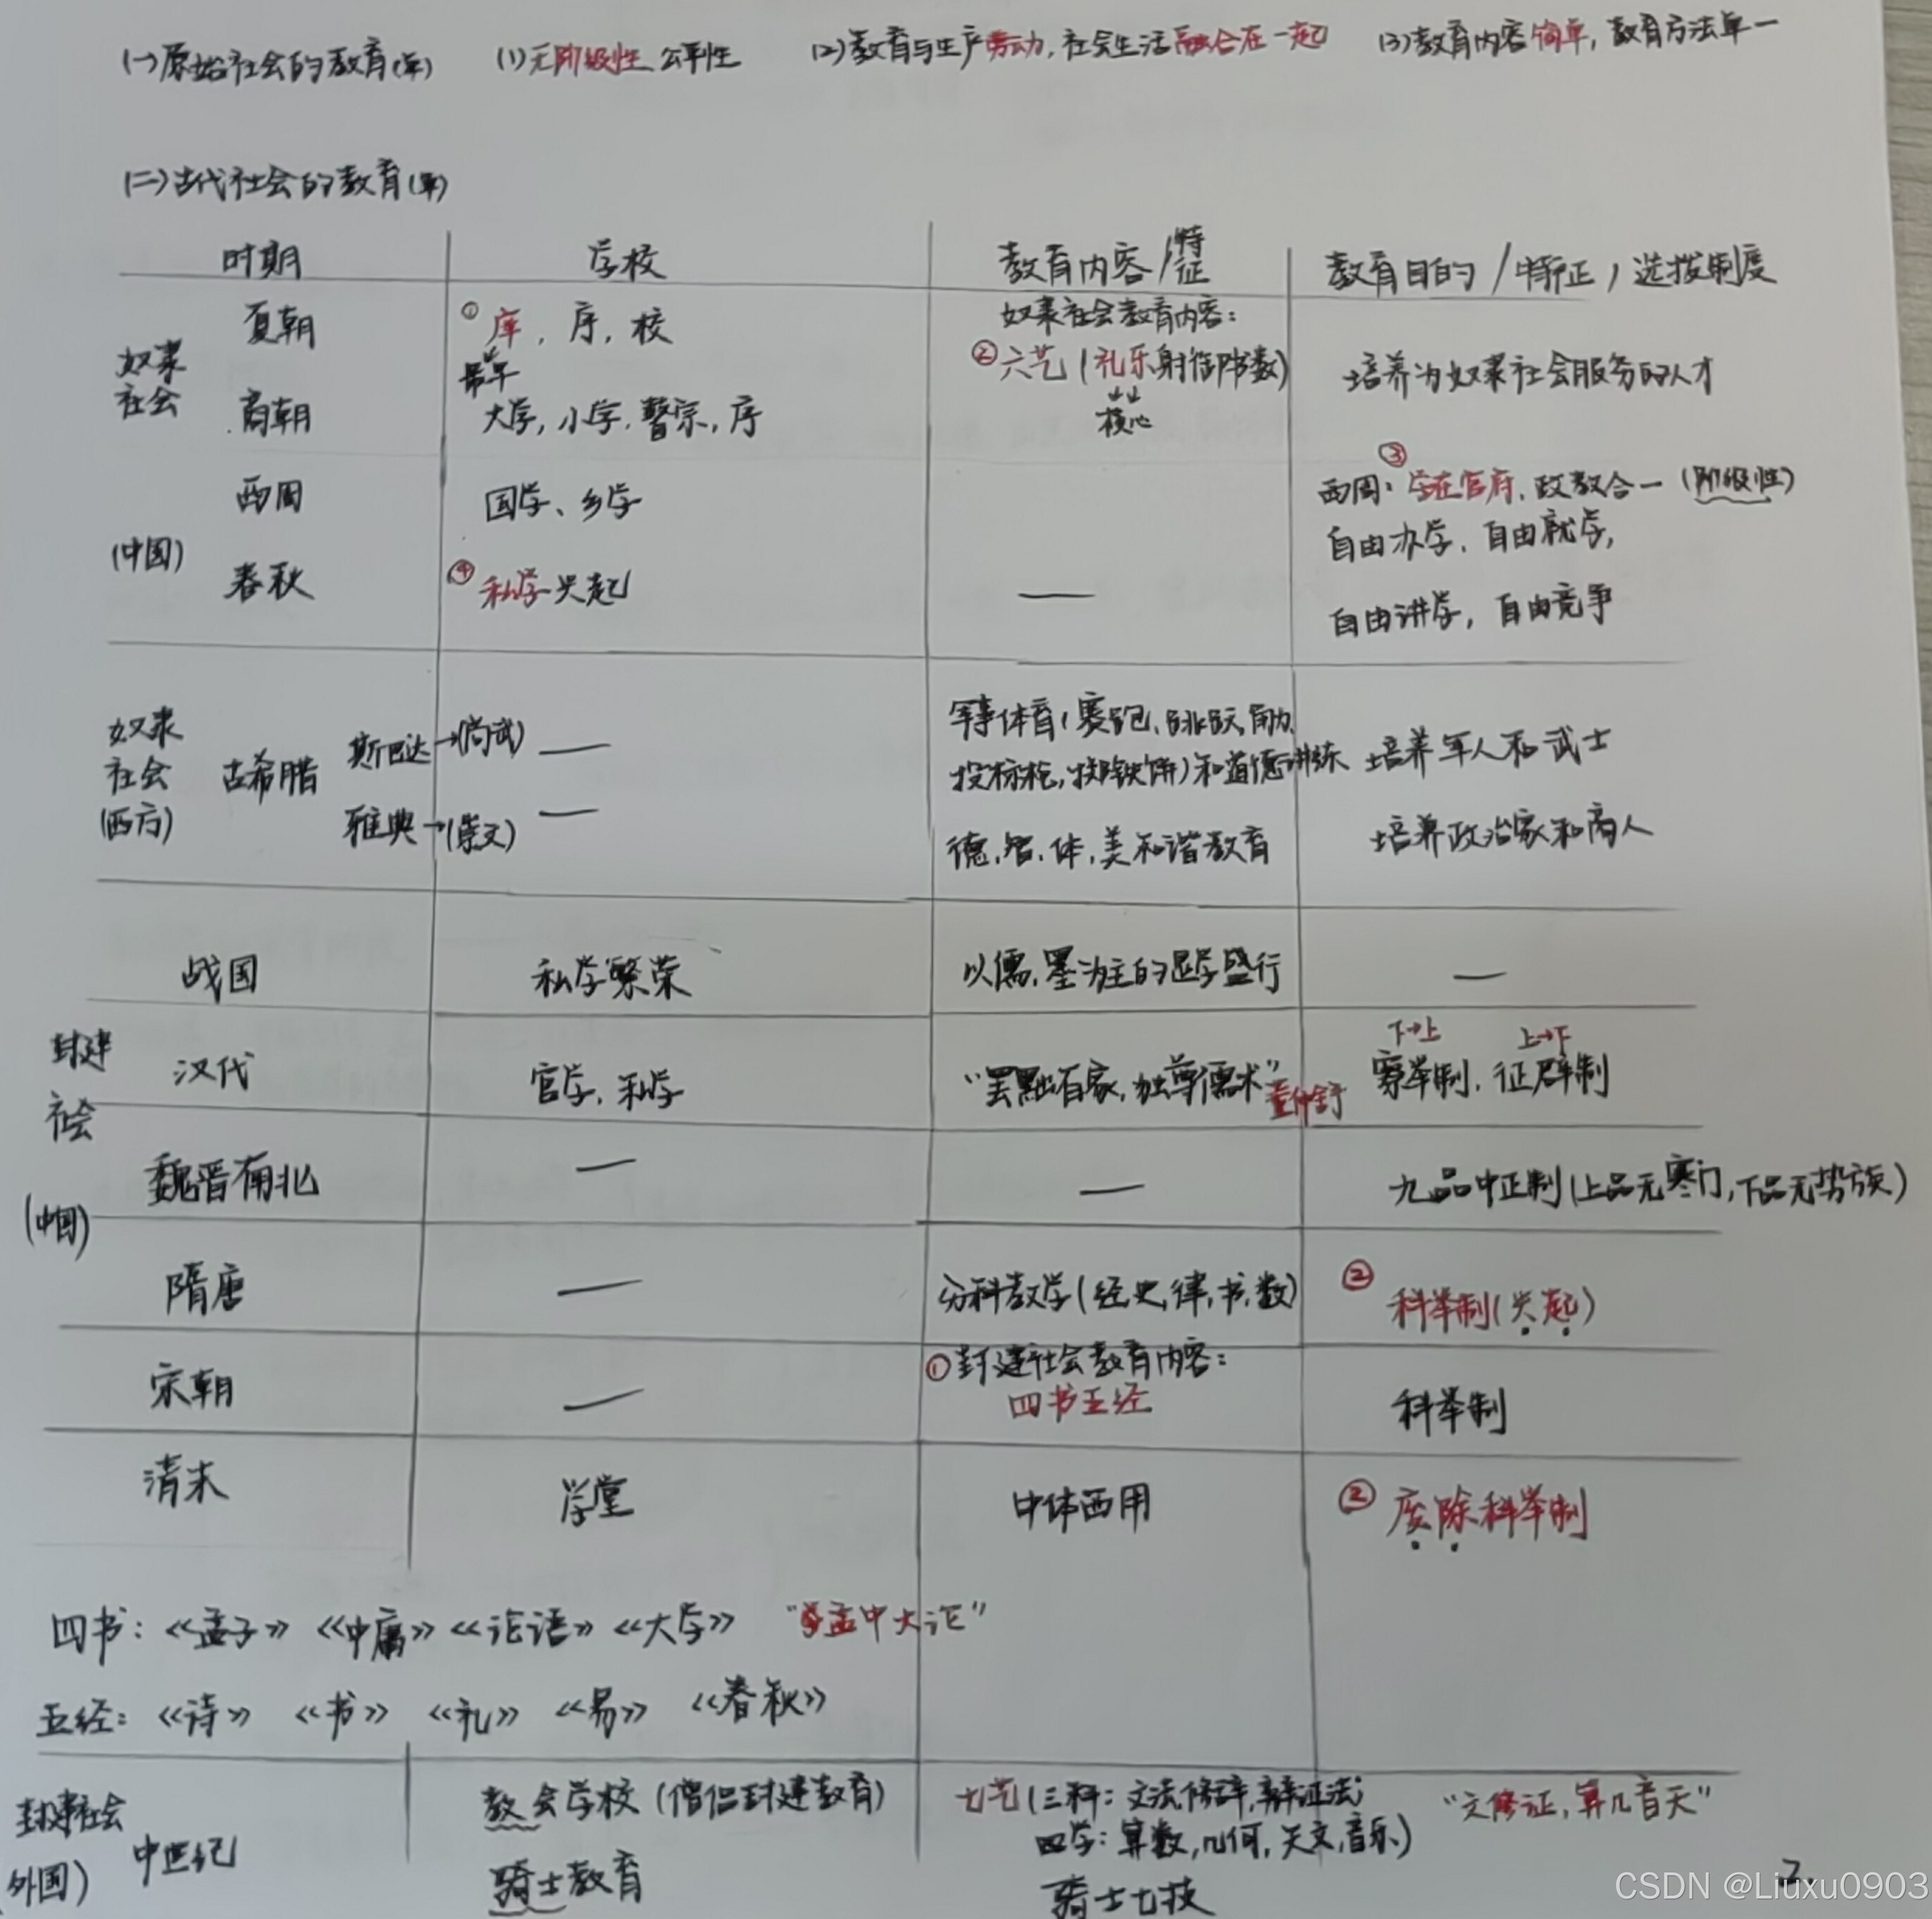 (一)原始社会的教育(单) (1)无阶级性、公平性 (2)教育与生产劳动,社会生活融合在一起 (3)教育内容简单,教育方法单一
(二)古代社会的教育(单)
时期 学校 教育内容/特征 教育目的/特征,选拔制度
奴隶社会
(中国)
夏朝 ①庠,序,校
最早
奴隶社会教育内容:
②六艺(礼乐射御书数)
↓↓
核心
培养为奴隶社会服务的人才
商朝 大学,小学,瞽宗,序
西周 国学、乡学 ③西周:学在官府,政教合一(阶级性)
春秋 ④私学兴起 — 自由办学,自由就学,
自由讲学,自由竞争
奴隶社会
(西方)
古希腊
斯巴达→(尚武) — 军事体育(赛跑,跳跃,角力,
投标枪,掷铁饼)和道德训练 培养军人和武士
雅典→(崇文) — 德,智,体,美和谐教育 培养政治家和商人
封建社会
(中国)
战国 私学繁荣 以儒,墨为主的显学盛行 —
下→上 上→下
汉代 官学,私学 “罢黜百家,独尊儒术”董仲舒 察举制,征辟制
魏晋南北 — — 九品中正制(上品无寒门,下品无势族)
隋唐 — 分科教学(经,史,律,书,数) ②科举制(兴起)
宋朝 — ①封建社会教育内容:
四书五经 科举制
清末 学堂 中体西用 ②废除科举制
四书:《孟子》《中庸》《论语》《大学》 “孟中大论”
五经:《诗》《书》《礼》《易》《春秋》
封建社会
(外国)
中世纪 教会学校(僧侣封建教育) 七艺(三科:文法,修辞,辩证法; “文修证,算几音天”
四学:算数,几何,天文,音乐)
骑士教育 骑士七技
2.
CSDN @Liuxu0903